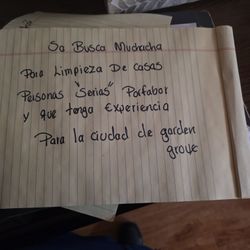 Sa Busca Muchacha
Para Limpieza De Casas
Personas "Serias" Porfabor
y que tenga Experiencia
Para la ciudad de garden
grove